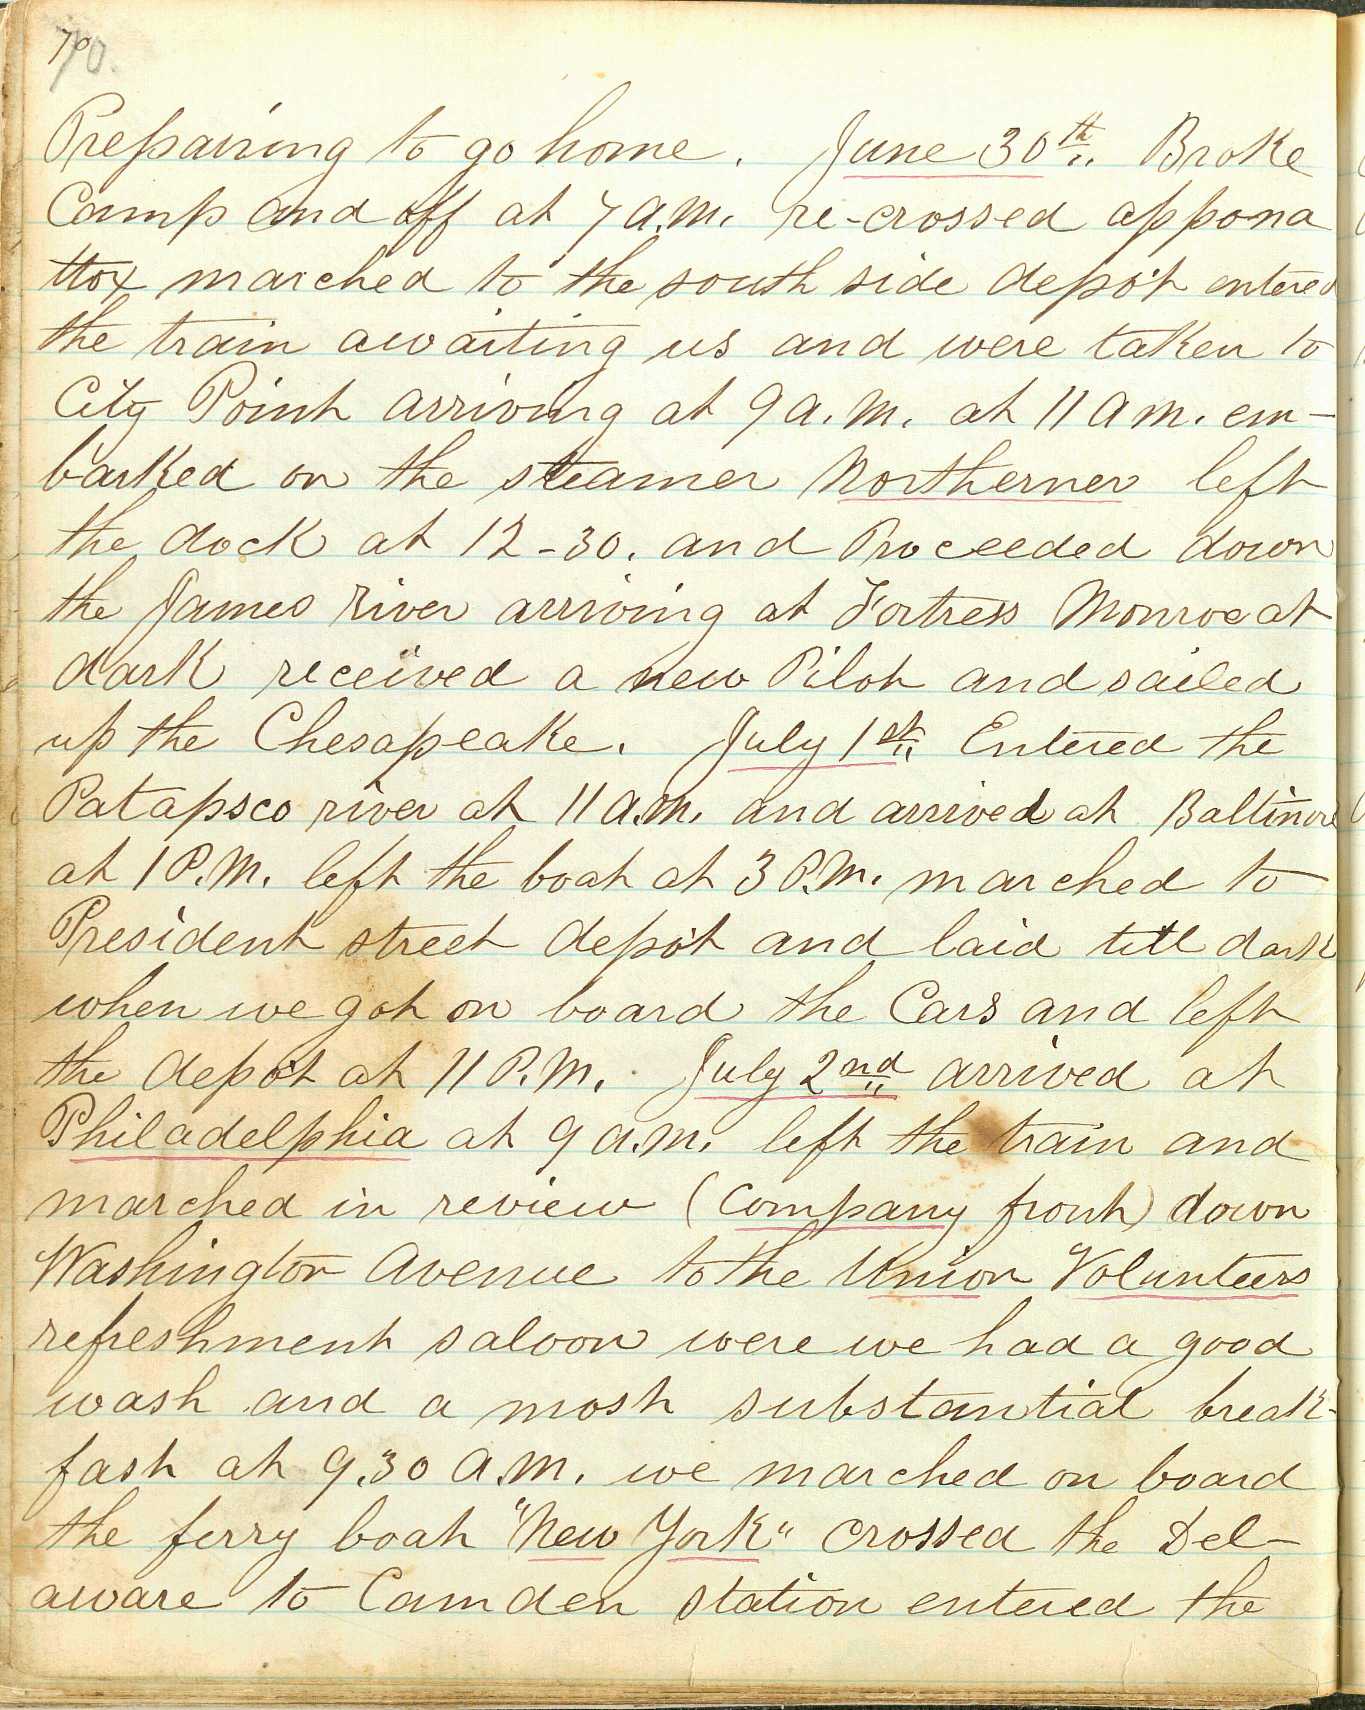 70
70.
Prepairing to go home. June 30th Broke
Camp and off at 7 a.m. re-crossed appoma
ttox marched to the south side depot entered
the train awaiting us and were taken to
City Point arriving at 9 a.m. at 11 a m. em-
barked on the steamer Northerner left
the dock at 12-30. and Proceeded down
the James River arriving at Fortress Monroe at
dark received a new Pilot and sailed
up the Chesapeake. July 1st Entered the
Patapsco river at 11 a.m. and arrived at Baltimore
at 1 P.M. left the boat at 3 P.M. marched to
President street depot and laid till dark
when we got on board the Cars and left
the depot at 11 P.M. July 2nd arrived at
Philadelphia at 9 a.m. left the train and
marched in review (Company front) down
Washington Avenue to the Union Volunteers
refreshment saloon were we had a good
wash and a most substantial break-
fast at 9.30 A.M. we marched on board
the ferry boat "New York" crossed the Del-
aware to Camden station entered the